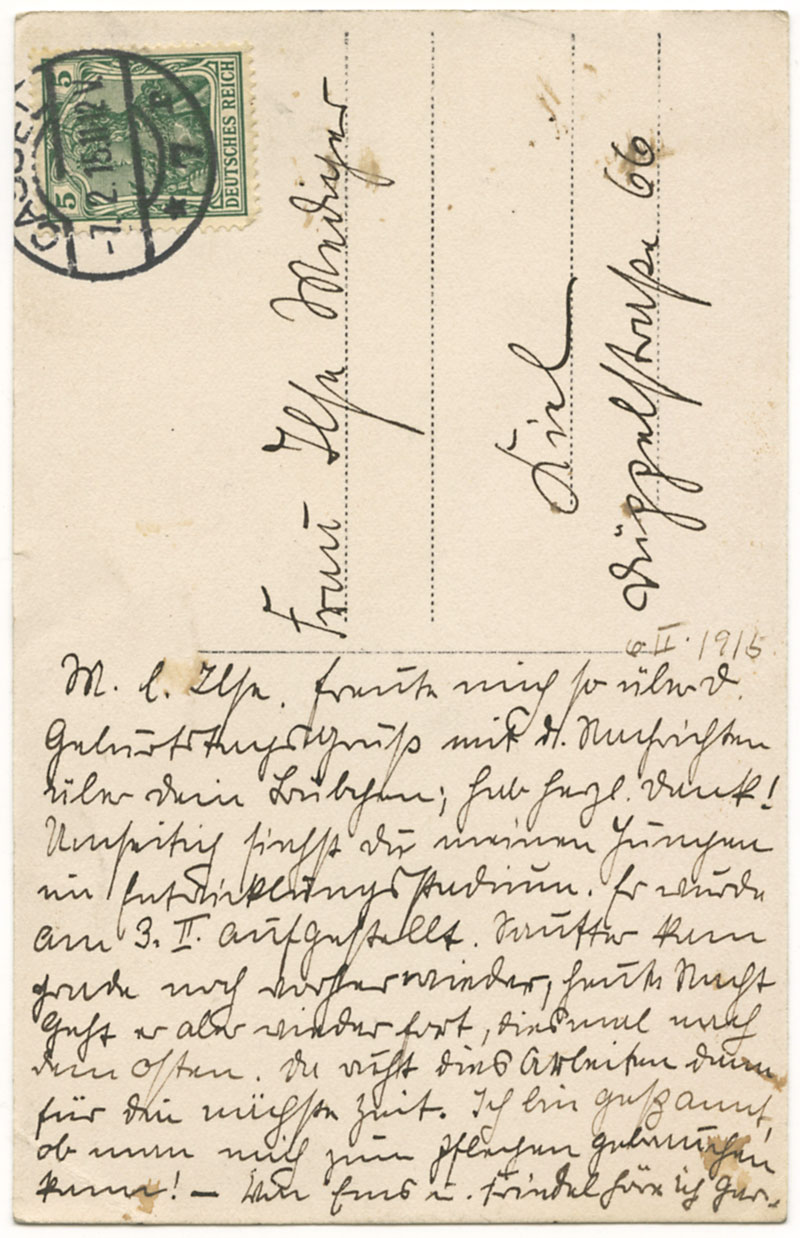 DEUTSCHES REICH
5 5
CASSEL
-7.2.15.11-12V.
* 7
Frau Ilse
Kiel
Düppelstraße 66
6 II. 1915
M. l. Ilse. Freute mich so über d.
Geburtstagsgruß mit d. Nachrichten
über dein Bübchen; hab herzl. Dank!
Umseitig siehst du meinen Jungen
im Entwicklungsstadium. Er wurde
am 3. II. aufgestellt. Sautter kam
grade noch vorher wieder, heute Nacht
geht er aber wieder fort, diesmal nach
dem Osten. Da ruht dies Arbeiten denn
für die nächste Zeit. Ich bin gespannt,
ob man mich zum Pflegen gebrauchen
kann! – Von Ems u. Friedel höre ich